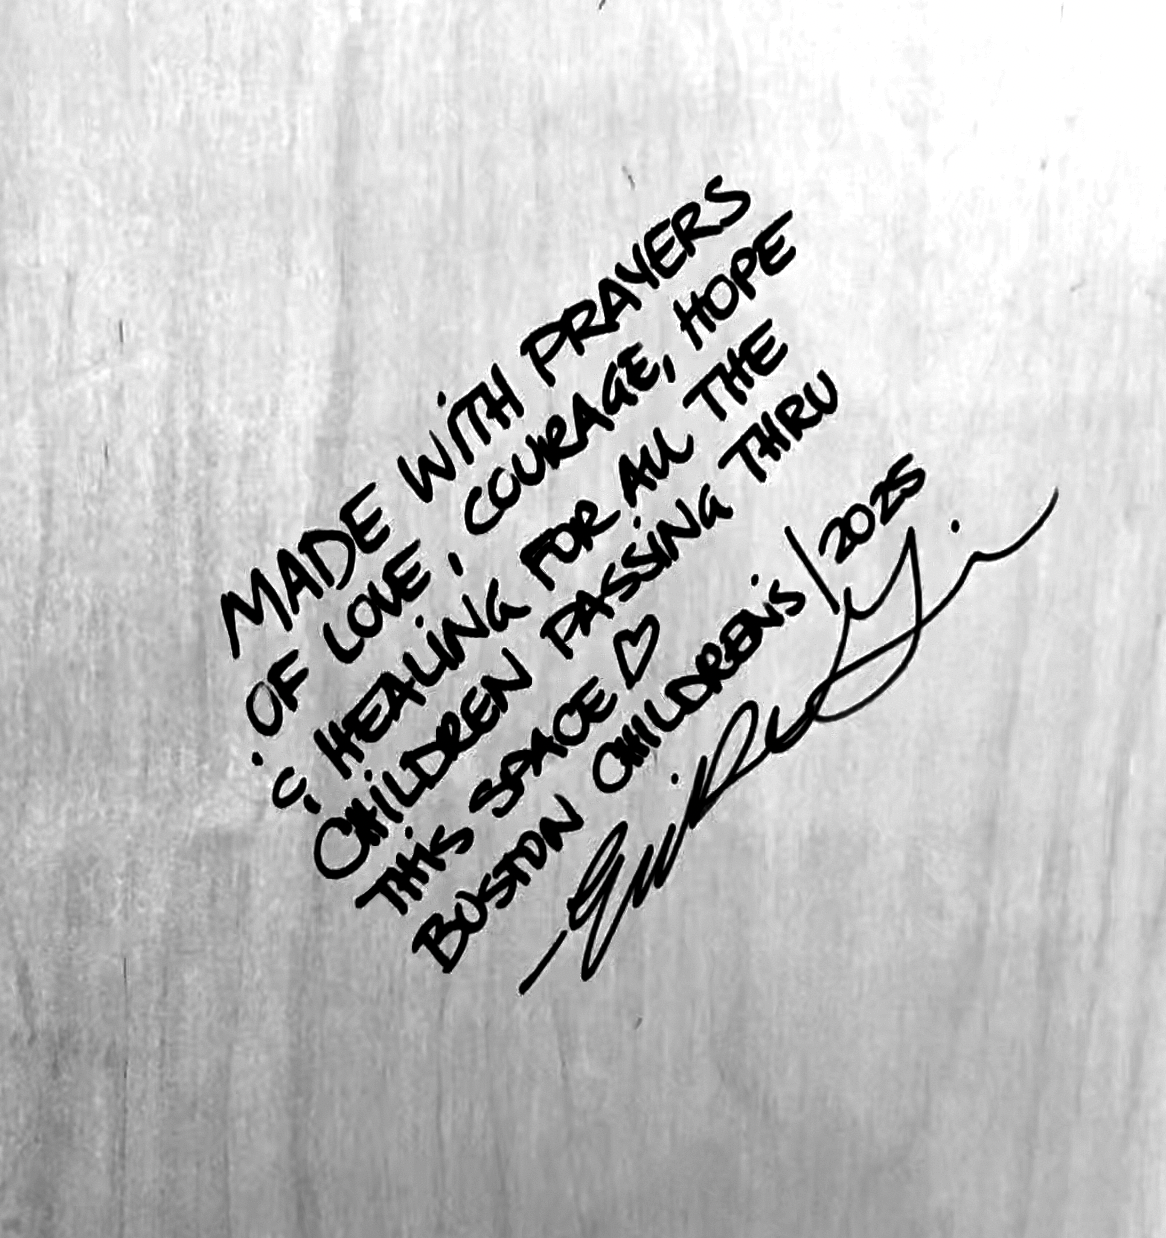 MADE WITH PRAYERS
OF LOVE, COURAGE, HOPE
& HEALING FOR ALL THE
CHILDREN PASSING THRU
THIS SPACE ♡
BOSTON CHILDREN'S | 2025